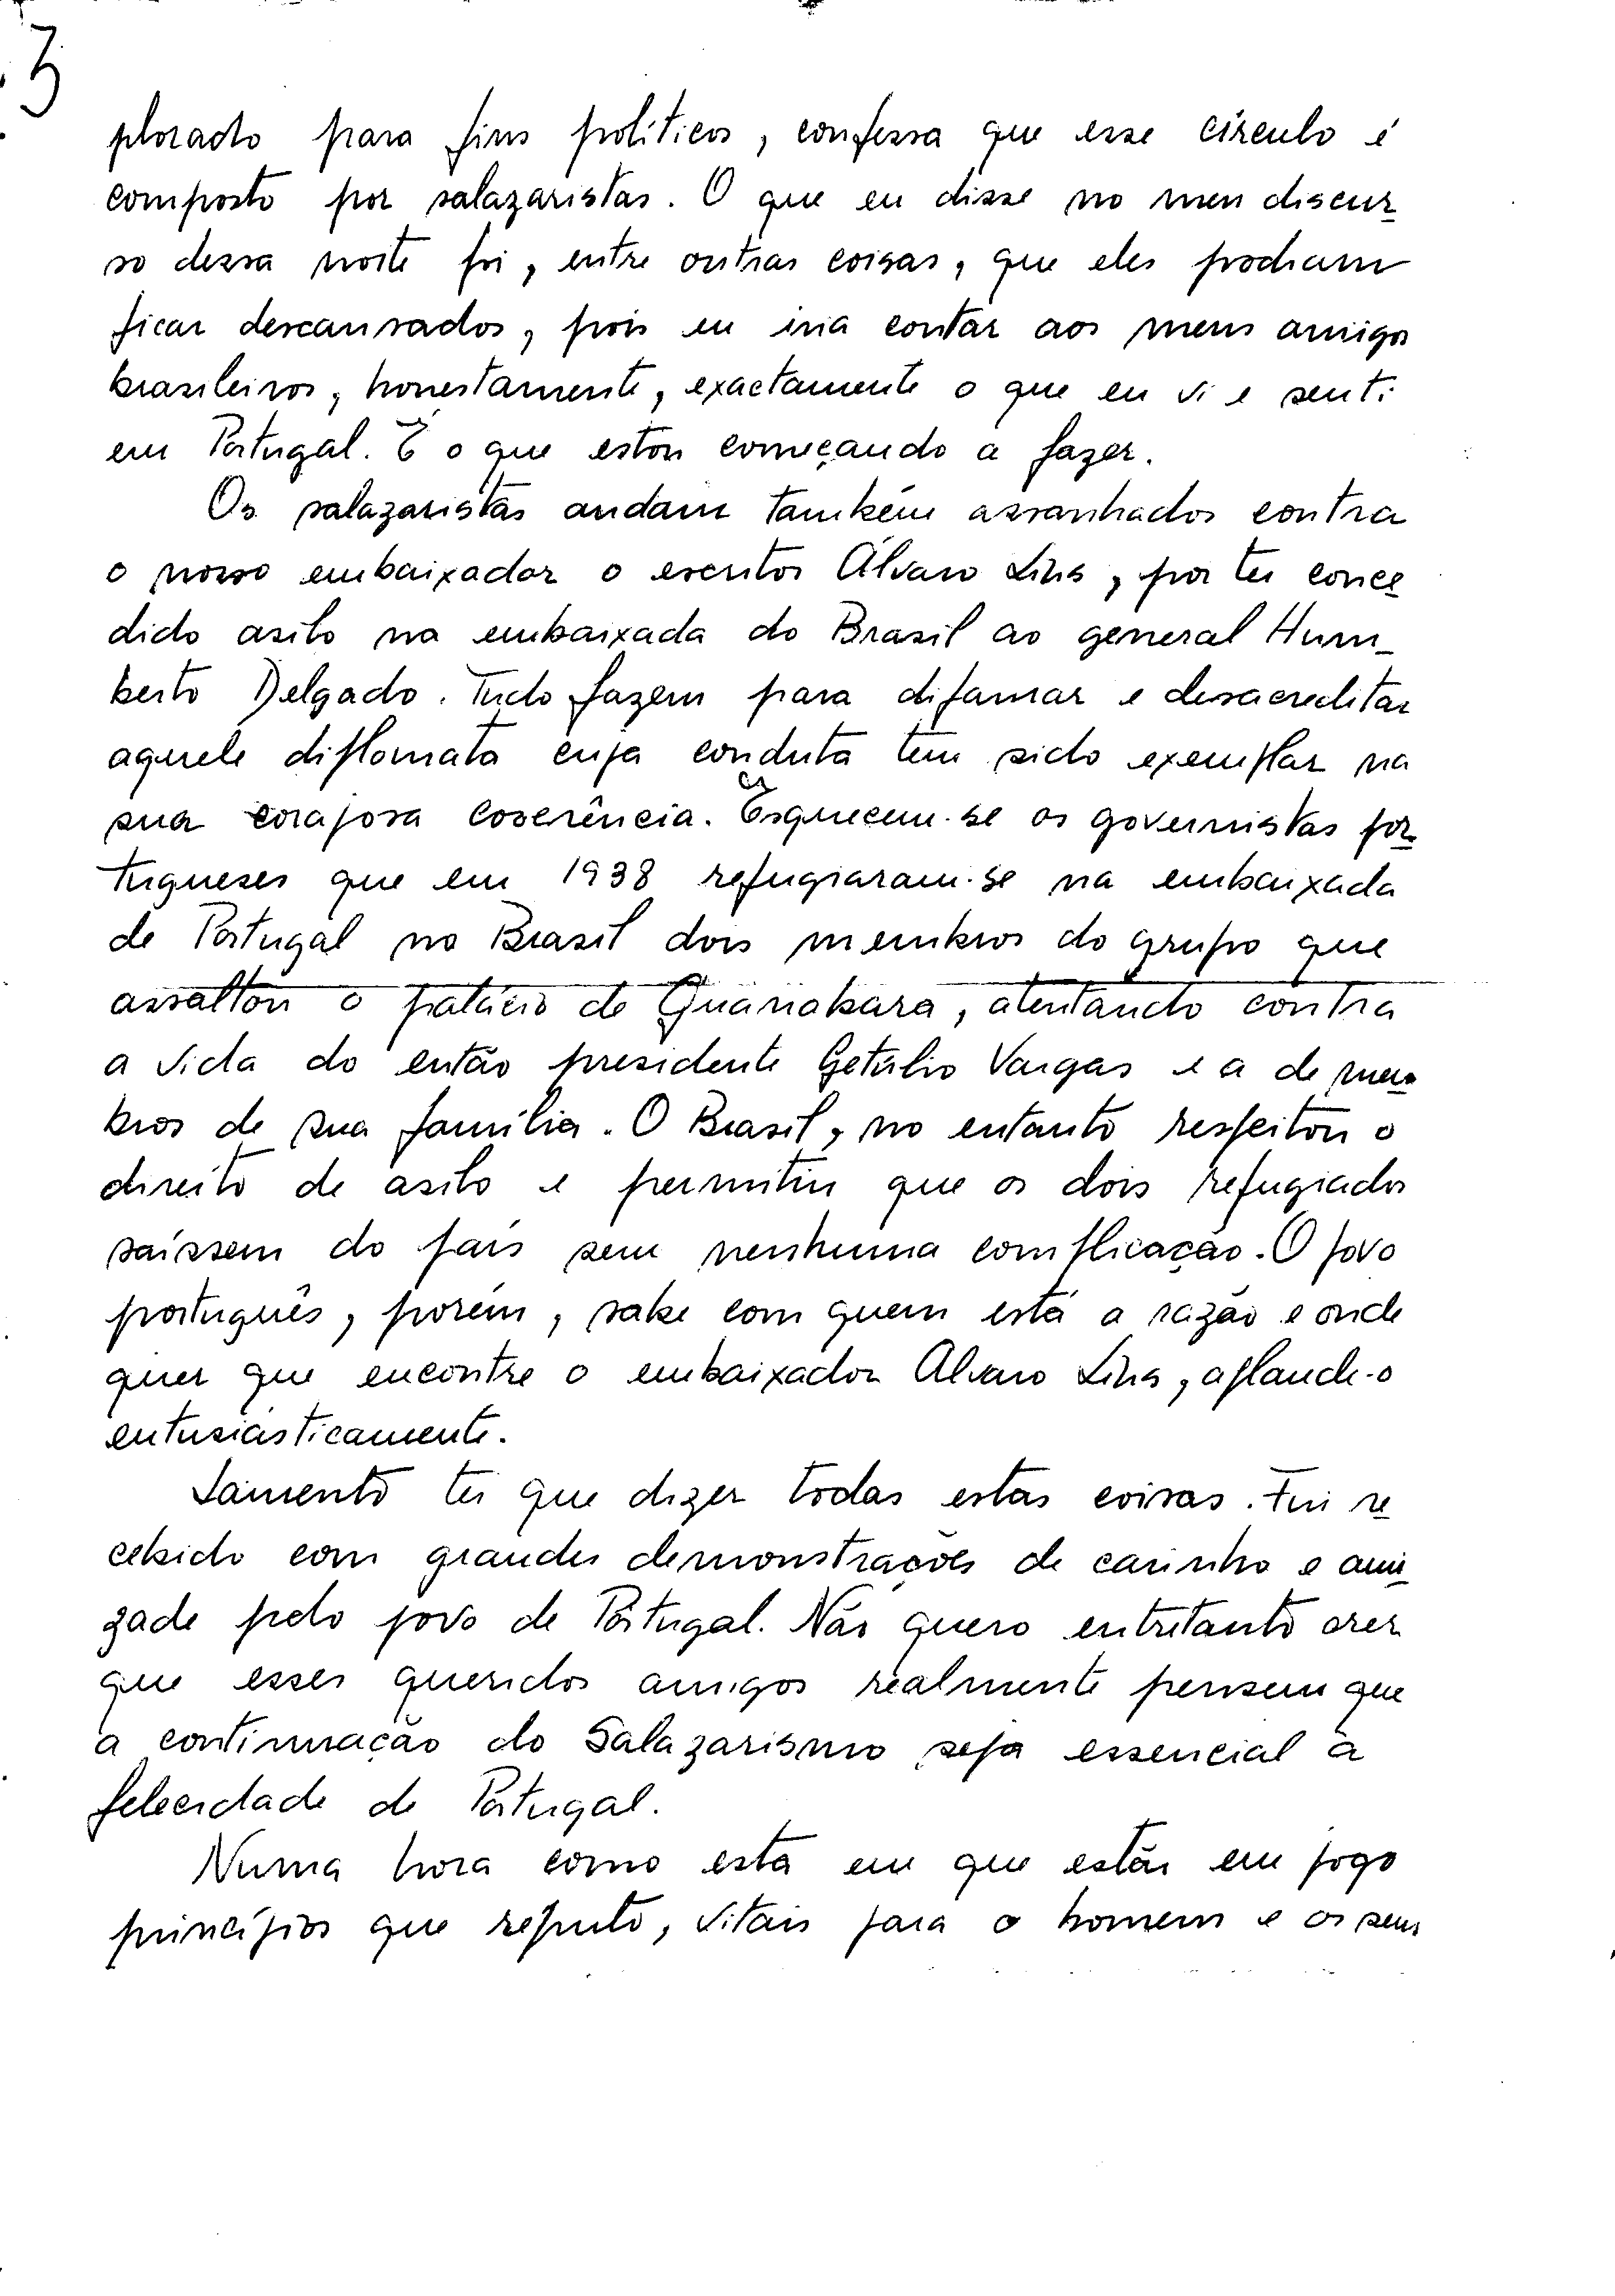 3
plorado para fins políticos, confessa que esse círculo é
composto por salazaristas. O que eu disse no meu discur
so dessa noite foi, entre outras coisas, que eles podiam
ficar descansados, pois eu iria contar aos meus amigos
brasileiros, honestamente, exactamente o que eu vi e senti
em Portugal. É o que estou começando a fazer.
Os salazaristas andam também assanhados contra
o nosso embaixador o escritor Álvaro Lins, por ter conce
dido asilo na embaixada do Brasil ao general Hum_
berto Delgado. Tudo fazem para difamar e desacreditar
aquele diplomata cuja conduta tem sido exemplar na
sua corajosa coerência. Esquecem-se os governistas por
tugueses que em 1938 refugiaram-se na embaixada
de Portugal no Brasil dois membros do grupo que
assaltou o palácio de Guanabara, atentando contra
a vida do então presidente Getúlio Vargas e a de mem
bros de sua família. O Brasil, no entanto respeitou o
direito de asilo e permitiu que os dois refugiados
saíssem do país sem nenhuma complicação. O povo
português, porém, sabe com quem está a razão e onde
quer que encontre o embaixador Alvaro Lins, aplaude-o
entusiàsticamente.
Lamento ter que dizer todas estas coisas. Fui re
cebido com grandes demonstrações de carinho e ami
zade pelo povo de Portugal. Não quero entretanto crer
que esses queridos amigos realmente pensem que
a continuação do Salazarismo seja essencial à
felecidade de Portugal.
Numa hora como esta em que estão em jogo
princípios que reputo, vitais para o homem e os seus